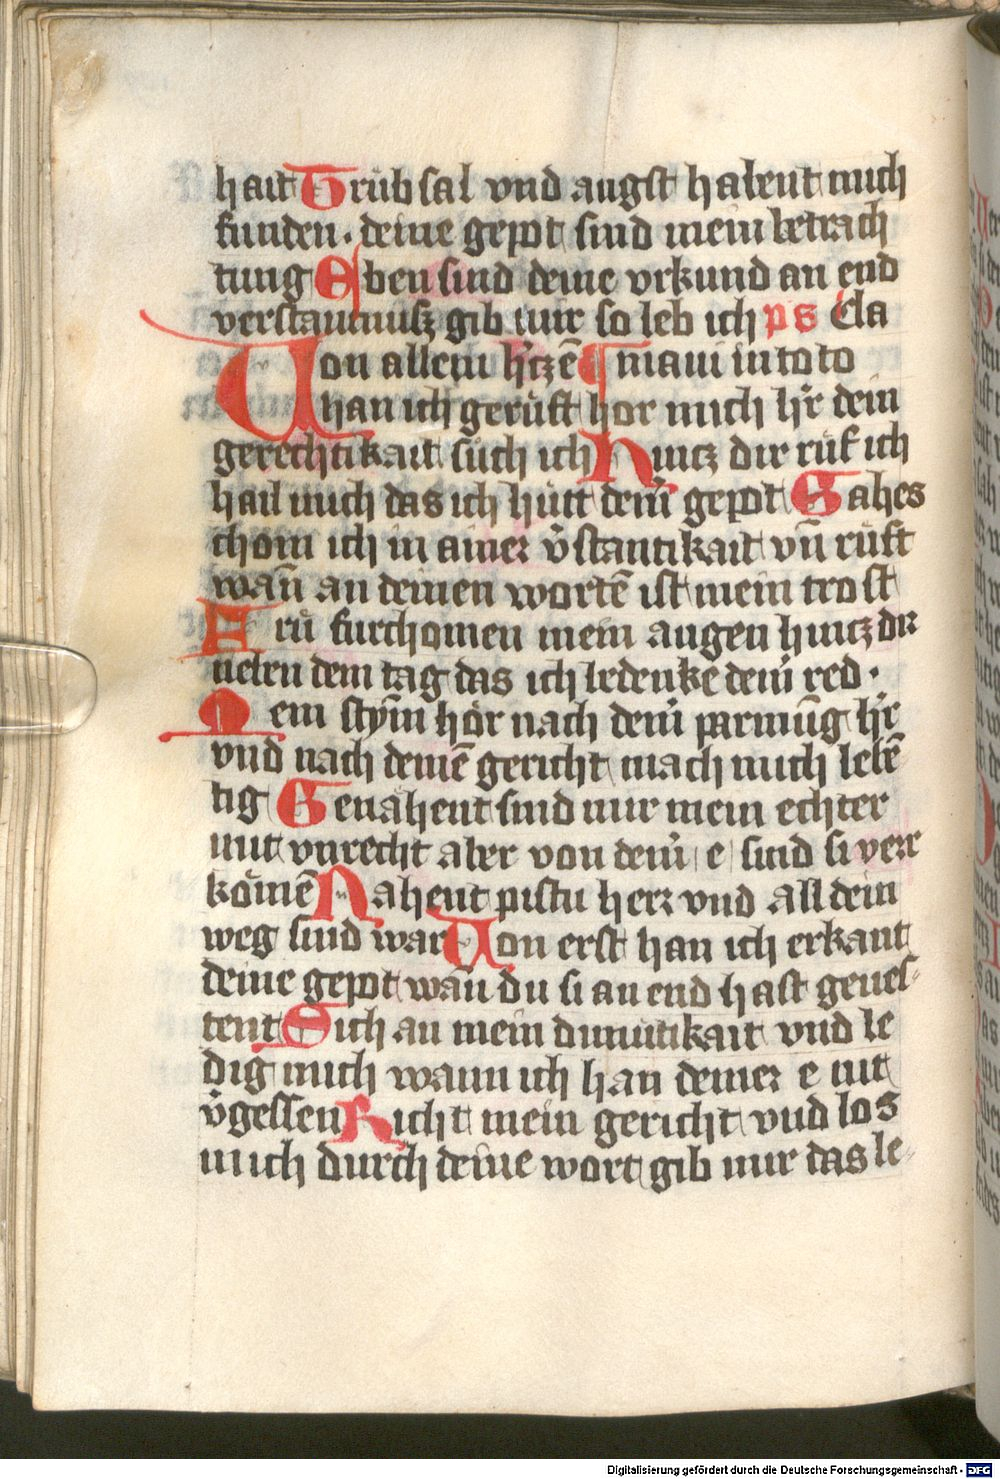 hait Trübsal vnd angst habent mich
funden. deine gepot sind mein betrach
tung Eben sind deine vrkund an end
verstantnusz gib mir so leb ich ps Cla
Von allem h'tzē maui in toto
han ich gerüft hör mich h'r dein
gerechtikait such ich Hintz dir ruf ich
hail mich das ich hütt dein' gepot Gahes
chom ich in ainer v'stantikait vn̄ rüft
wan̄ an deinen wortē ist mein trost
Frü furchomen mein augen hintz dir
neben dem tag das ich bedenke dein' red.
Mein stym̄ hör nach dein' parmūg h'r
vnd nach deinē gericht mach mich lebē
tig Genähent sind mir mein echter
mit vnrecht aber von dein' e sind si verr
kömē Nahent pistu herr vnd all dein
weg sind war Von erst han ich erkant
deine gepot wan̄ du si an end hast geues-
tent Sich an mein dimutikait vnd le
dig mich wann ich han deiner e nit
v'gessen Richt mein gericht vnd los
mich durch deine wort gib mir das le-
Digitalisierung gefördert durch die Deutsche Forschungsgemeinschaft - DFG